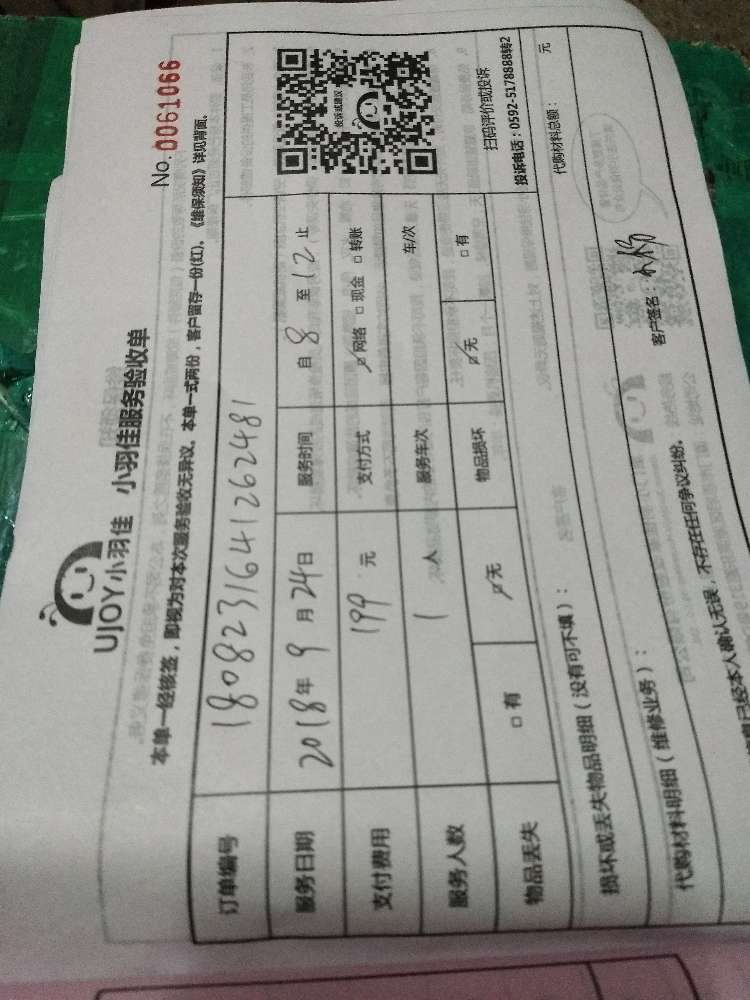 No. 0061066
UJOY小羽佳 小羽佳服务验收单
本单一经核签，即视为对本次服务验收无异议。本单一式两份，客户留存一份(红)。《维保须知》详见背面。
订单编号 1808231641262481
投诉或建议
服务日期 2018年9月24日 服务时间 自8至12止
支付费用 199元 支付方式 ☑网络 □现金 □转账
服务人数 1人 服务车次 车/次
扫码评价或投诉
物品丢失 □有 ☑无 物品损坏 ☑无 □有
投诉电话：0592-5178888转2
损坏或丢失物品明细（没有可不填）：
代购材料明细（维修业务）： 代购材料总额： 元
已经本人确认无误，不存在任何争议纠纷。
客户签名：